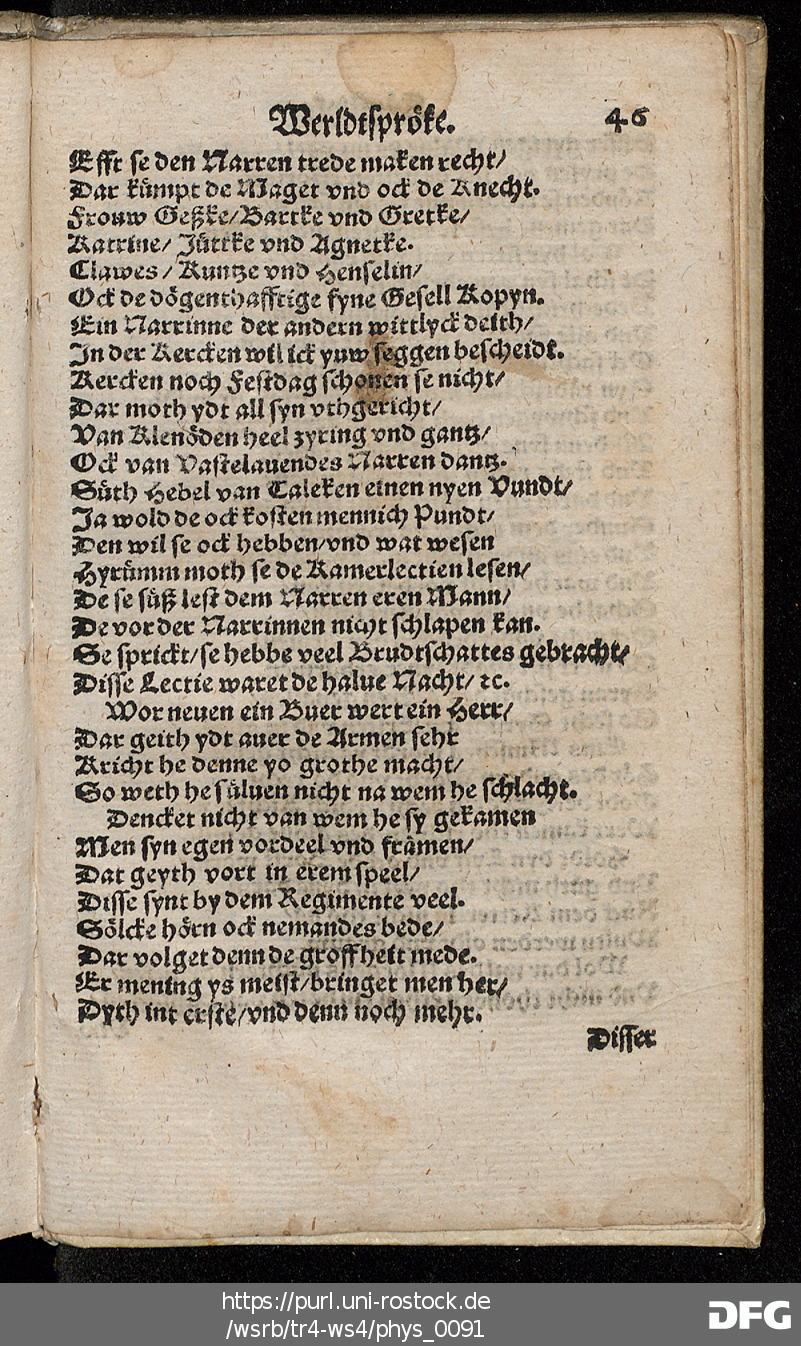 Werldtspröke. 46
Efft se den Narren trede maken recht/
Dar kümpt de Maget vnd ock de Knecht.
Frouw Geßke/Bartke vnd Gretke/
Katrine/ Jüttke vnd Agnetke.
Clawes/ Kuntze vnd Henselin/
Ock de dögenthafftige fyne Gesell Kopyn.
Ein Narrinne der andern wittlyck deith/
In der Kercken wil ick yuw seggen bescheidt.
Kercken noch Festdag schonen se nicht/
Dar moth ydt all syn vthgericht/
Van Klenöden heel zyring vnd gantz/
Ock van Vastelauendes Narren dantz.
Süth Hebel van Taleken einen nyen Vundt/
Ja wold de ock kosten mennich Pundt/
Den wil se ock hebben/vnd wat wesen
Hyrümm moth se de Kamerlectien lesen/
De se süß lest dem Narren eren Mann/
De vor der Narrinnen nicht schlapen kan.
Se sprickt/se hebbe veel Brudtschattes gebracht/
Disse Lectie waret de halue Nacht/ ꝛc.
Wor neuen ein Buer wert ein Herr/
Dar geith ydt auer de Armen sehr
Kricht he denne yo grothe macht/
So weth he süluen nicht na wem he schlacht.
Dencket nicht van wem he sy gekamen
Men syn egen vordeel vnd främen/
Dat geyth vort in erem speel/
Disse synt by dem Regimente veel.
Sölcke hörn ock nemandes bede/
Dar volget denn de groffheit mede.
Er mening ys meist/bringet men her/
Dyth int erste/vnd denn noch mehr.
Disser
https://purl.uni-rostock.de
/wsrb/tr4-ws4/phys_0091
DFG